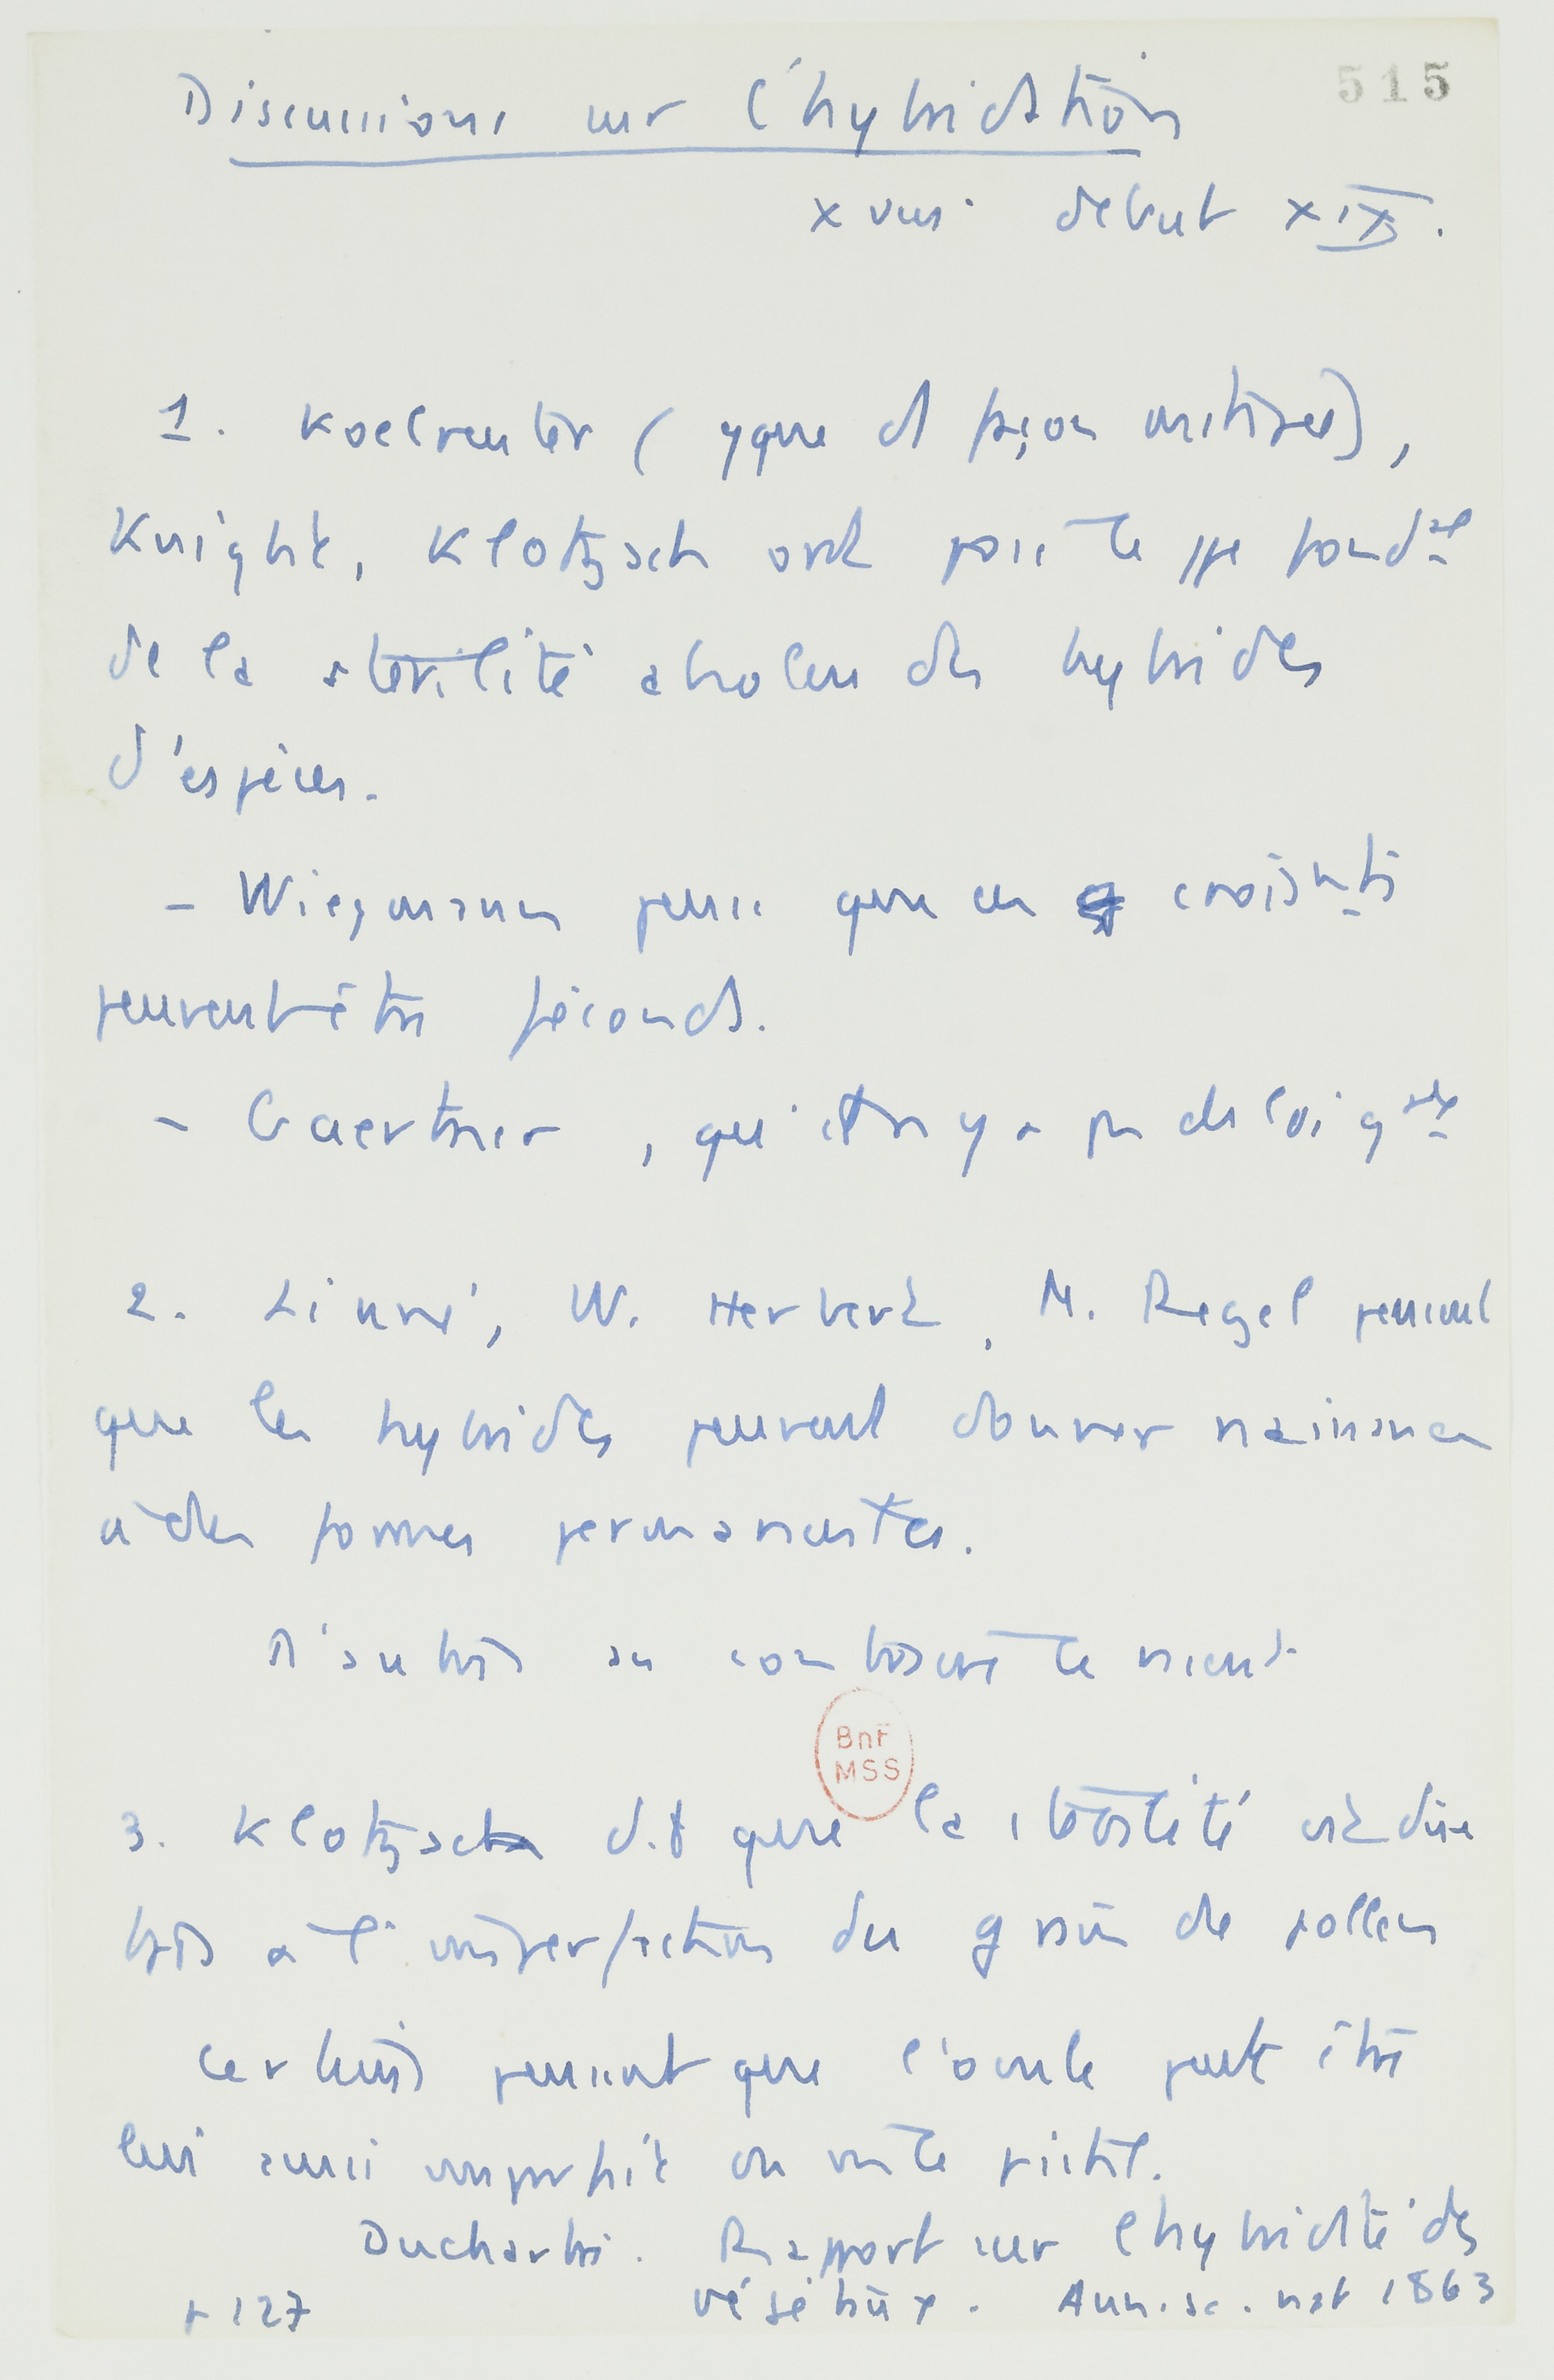 515
Discussions sur l'hybridation
XVIII. début XIX.
1. Koelreuter ( que de façon mitigée),
Knight, Klotzsch ont posé le ppe fondal
de la stérilité absolue des hybrides
d'espèces.
- Wiegmann pense que ces croismts
peuvent être féconds.
- Gaertner, qu'il n'y a pas de loi gale
2. Linné, W. Herbert, M. Regel pensent
que les hybrides peuvent donner naissance
à des formes permanentes.
D'autres au contraire le nient.
3. Klotzsch dit que la stérilité est due
à l'imperfection du grain de pollen
Certains pensent que l'ovule peut être
lui aussi imparfait ou même le pistil.
Duchartre. Rapport sur l'hybridité des
végétaux. Ann. sc. nat 1863
p 127
BnF
MSS